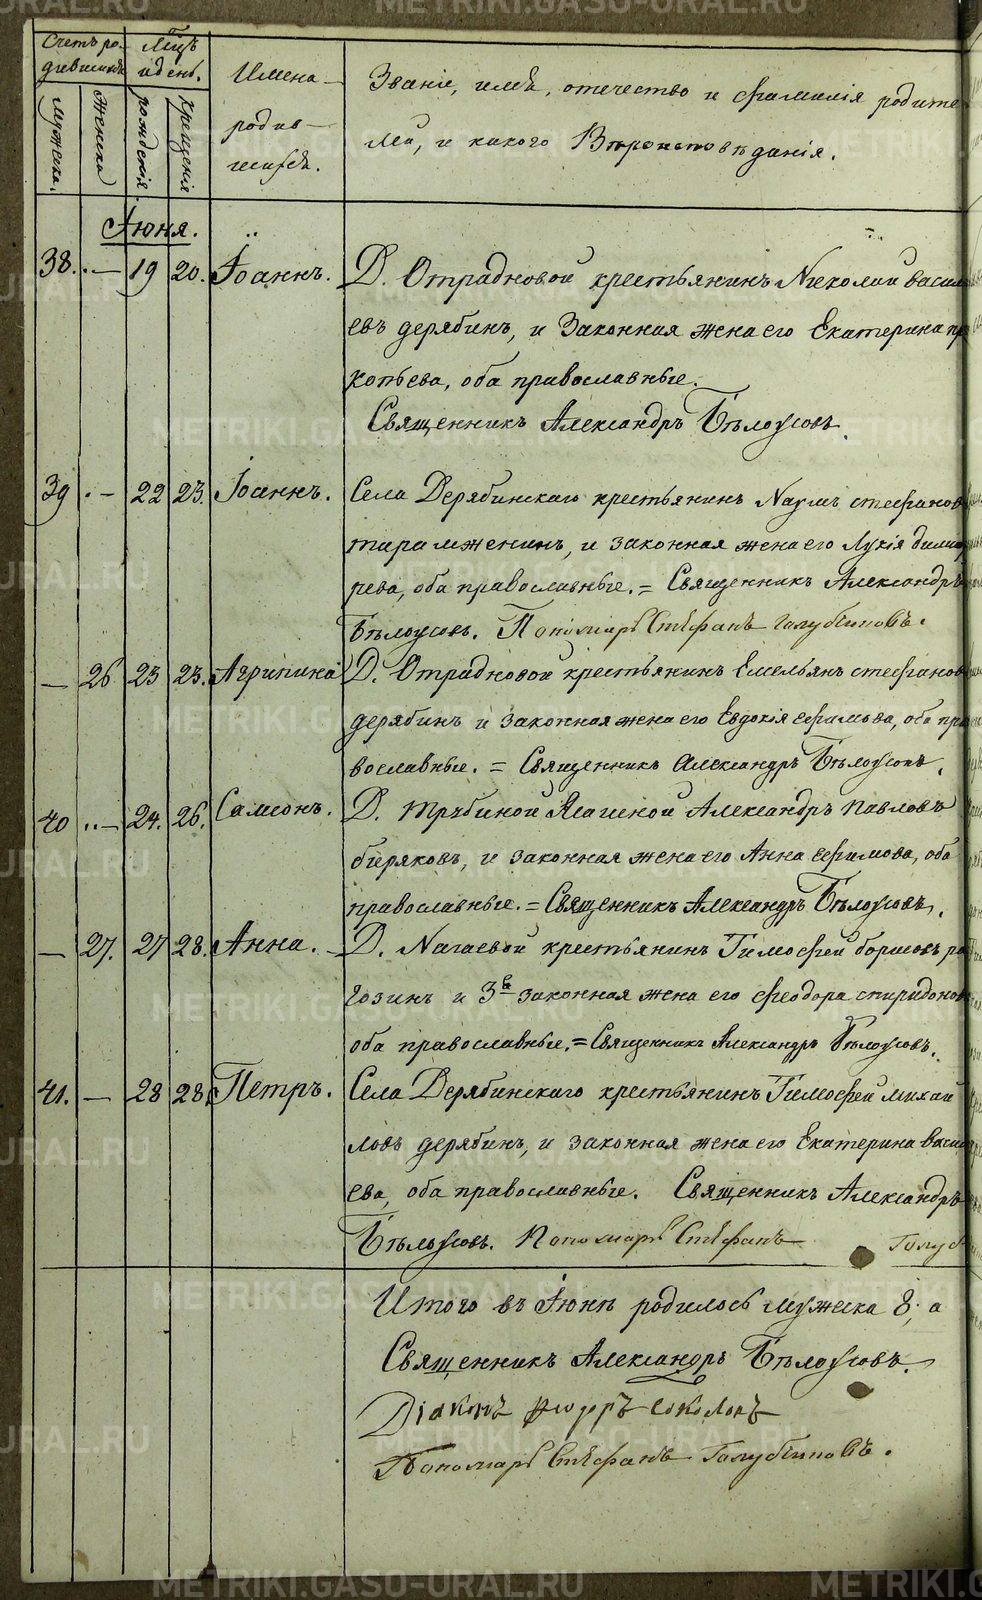 Счетъ ро- Мѣсяцъ
дившихся и день. Имена
Званіе, имя, отечество и фамилія родите
мужеска. женска рожденія крещенія родив-
лей, и какого Вѣроисповѣданія.
шихся.
Іюня.
38. - 19 20. Іоаннъ. Д. Отрадновой крестьянинъ Николай васил
евъ дерябинъ, и Законная жена его Екатерина пр
копьева, оба православные.
Священникъ Александръ Бѣлоусовъ.
39 - 22 23. Іоаннъ. Села Дерябинскаго крестьянинъ Наумъ стефанов
и законная жена его Лукія
оба православные. = Священникъ Александръ
Бѣлоусовъ. Пономарь Стефанъ Голубчиковъ.
- 26 23 23. Агрипина Д. Отрадновой крестьянинъ Емельянъ стефанов
дерябинъ и законная жена его Евдокія ефимова, оба пра
вославные. = Священникъ Александръ Бѣлоусовъ.
40 - 24. 26. Самсонъ. Д. Александръ павловъ
биряковъ, и законная жена его Анна ефимова, оба
православные. = Священникъ Александръ Бѣлоусовъ.
- 27. 27 28. Анна. Д. Нагаевой крестьянинъ Тимофей борисовъ ро
гозинъ и 3я законная жена его феодора спиридонов
оба православные. = Священникъ Александръ Бѣлоусовъ.
41. - 28 28. Петръ. Села Дерябинскаго крестьянинъ Тимофей михай
ловъ дерябинъ, и законная жена его Екатерина васил
ева, оба православные. Священникъ Александръ
Бѣлоусовъ. Пономарь Стефанъ Голуб
Итого въ Іюнѣ родилось мужеска 8, а
Священникъ Александръ Бѣлоусовъ.
Діаконъ Соколовъ
Пономарь Стефанъ Голубчиковъ.
METRIKI.GASO-URAL.RU